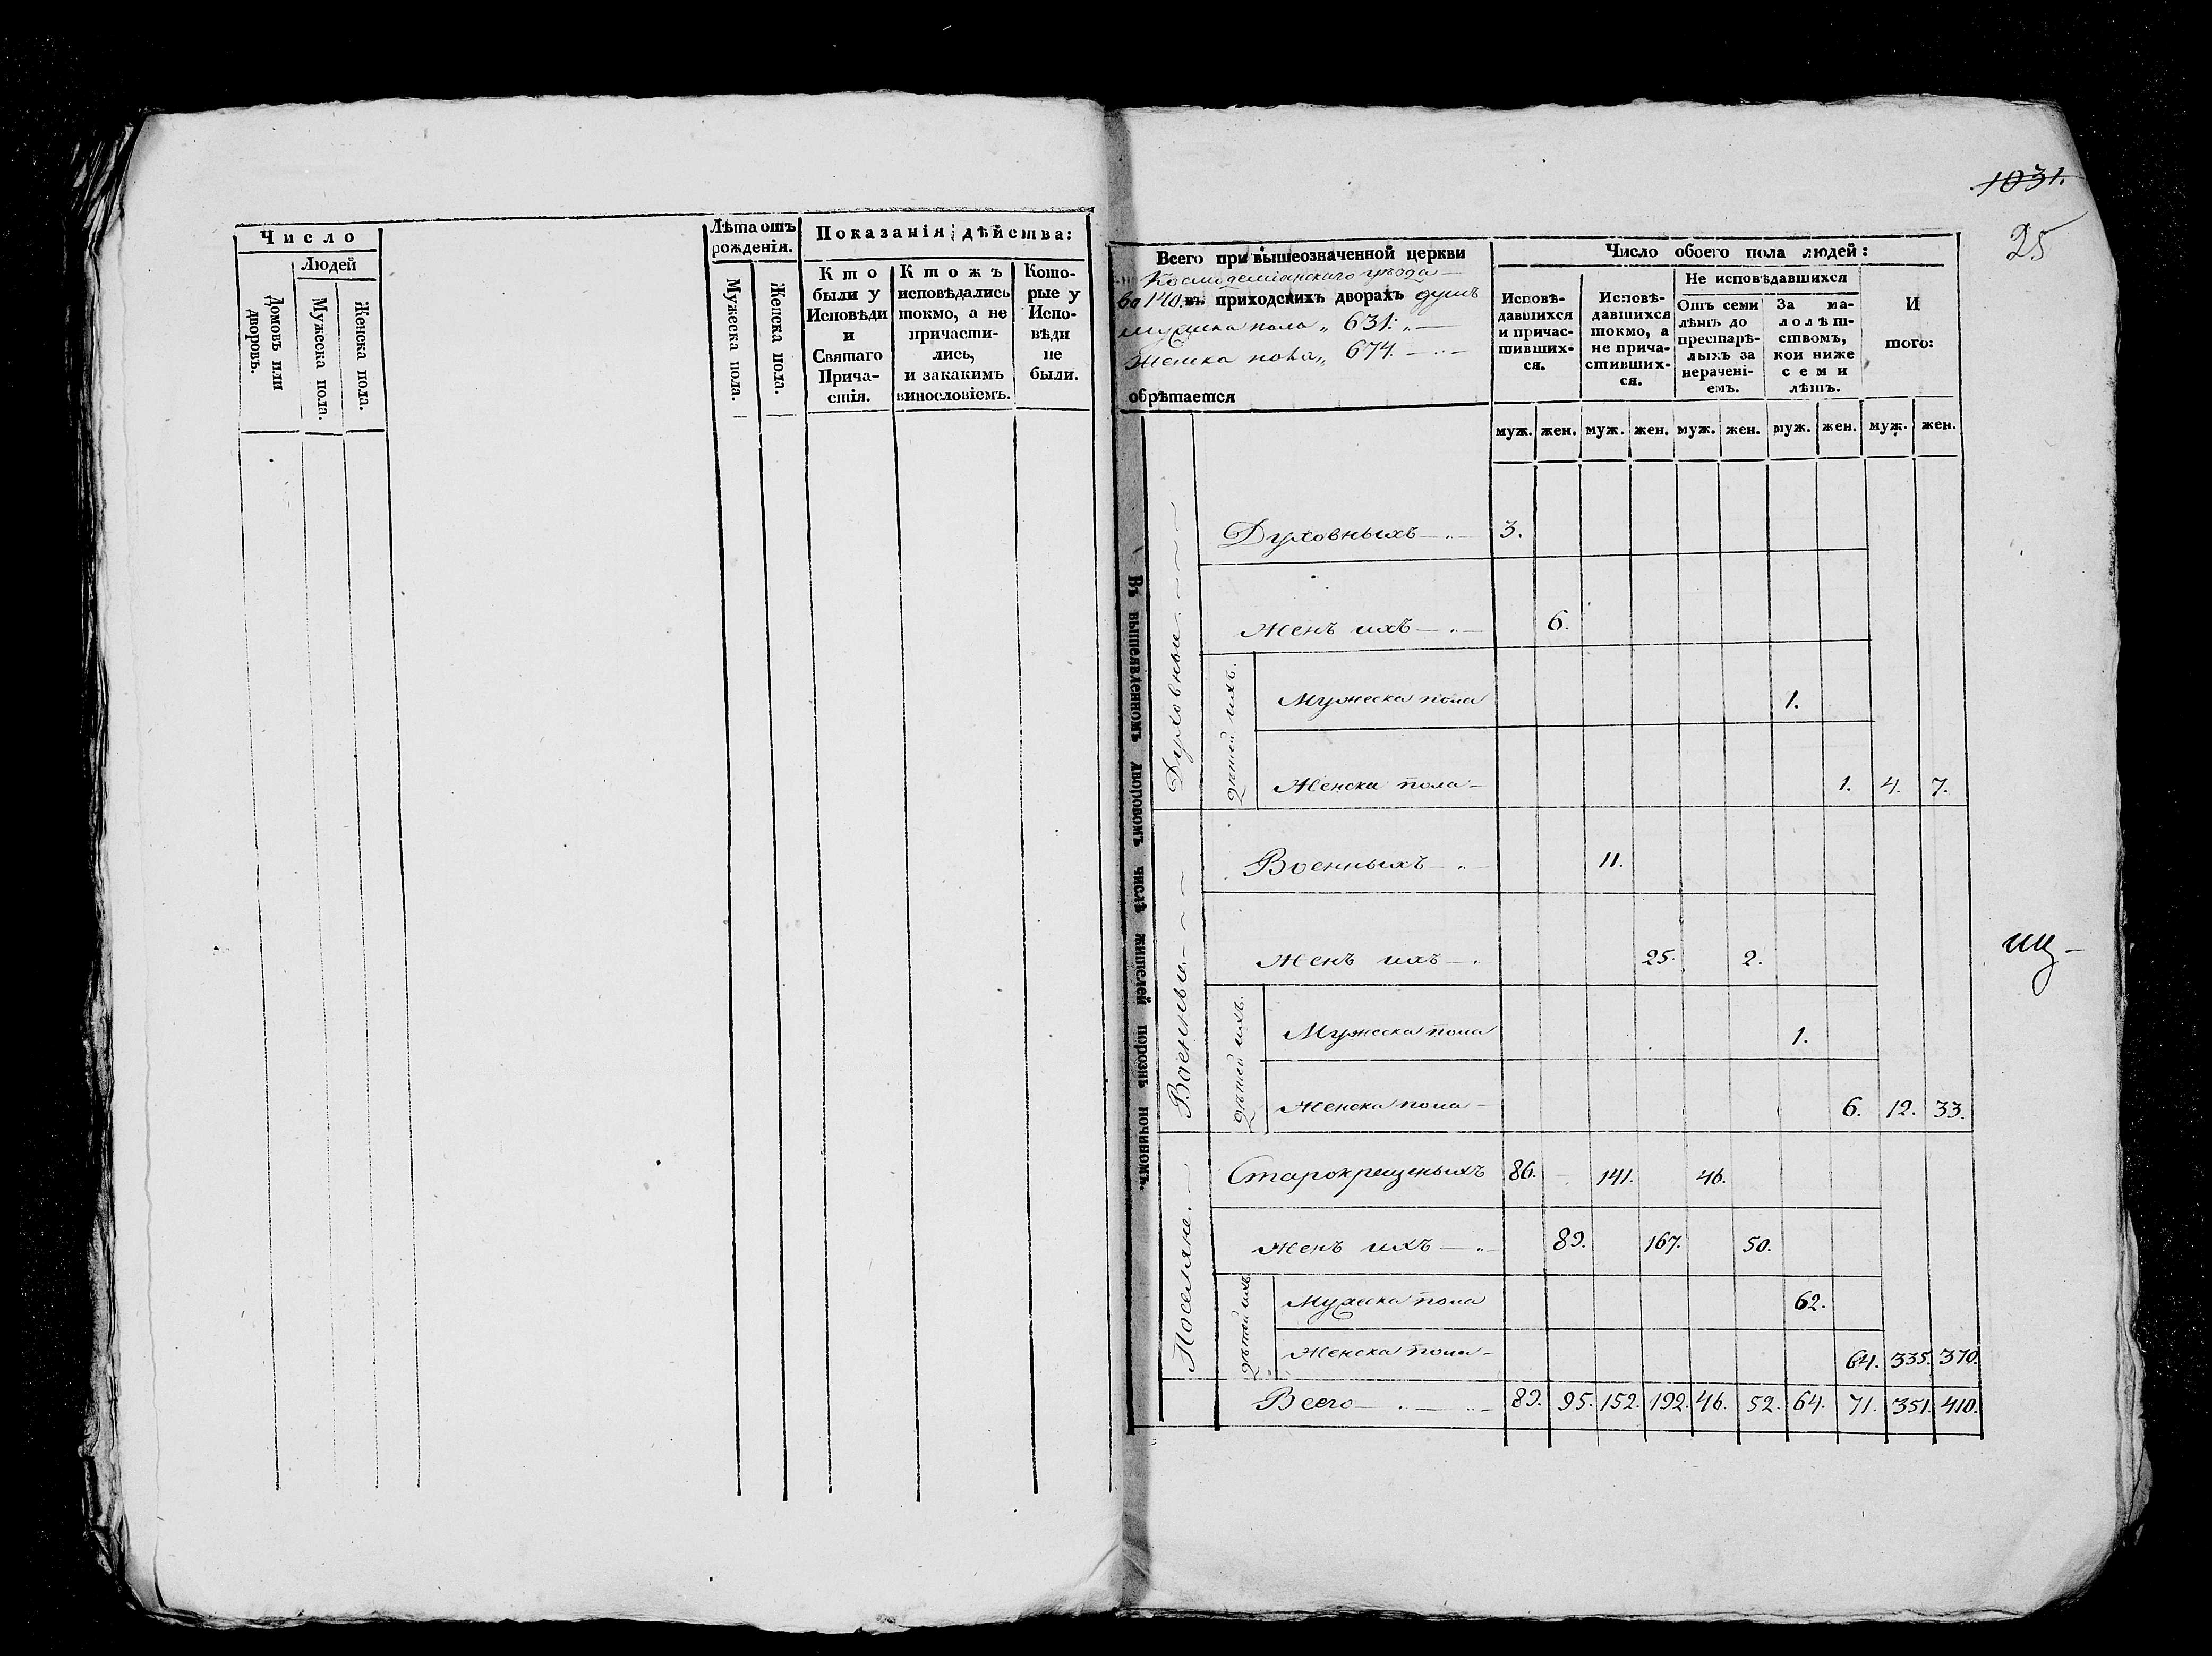 Число
Людей
Домовъ или дворовъ.
Мужеска пола.
Женска пола.
Лѣта отъ рожденія.
Мужеска пола.
Женска пола.
Показанія дѣйства:
Кто были у Исповѣди и Святаго Причастія.
Ктожъ исповѣдались токмо, а не причастились, и закакимъ винословіемъ.
Которые у Исповѣди не были.
1031.
25
Всего при вышеозначенной церкви
Космодеміанскаго уѣзда
во 140. въ приходскихъ дворахъ душъ
мужеска пола „ 631. „ —
женска пола „ 674. — „ —
обрѣтается
Число обоего пола людей:
Исповѣ-
давшихся
и причас-
тивших-
ся.
Исповѣ-
давшихся
токмо, а
не прича-
стивших-
ся.
Не исповѣдавшихся
Отъ семи
лѣтъ до
престарѣ-
лыхъ за
нерачені-
емъ.
За ма-
лолѣт-
ствомъ,
кои ниже
семи
лѣтъ.
И
того:
муж. жен. муж. жен. муж. жен. муж. жен. муж. жен.
Въ вышеявленномъ дворовомъ числѣ жителей порознь починомъ.
Духовные
Духовныхъ — „ — 3.
Женъ ихъ — „ — 6.
Дѣтей ихъ.
Мужеска пола 1.
Женска пола — 1. 4. 7.
Военные
Военныхъ — „ — 11.
Женъ ихъ — „ 25. 2.
Дѣтей ихъ.
Мужеска пола 1.
Женска пола — 6. 12. 33.
Поселяне.
Старокрещеныхъ 86. 141. 46.
Женъ ихъ — „ — 89. 167. 50.
Дѣтей ихъ
Мужеска пола 62.
Женска пола — 64. 335. 370.
Всего — „ — „ — 89. 95. 152. 192. 46. 52. 64. 71. 351. 410.